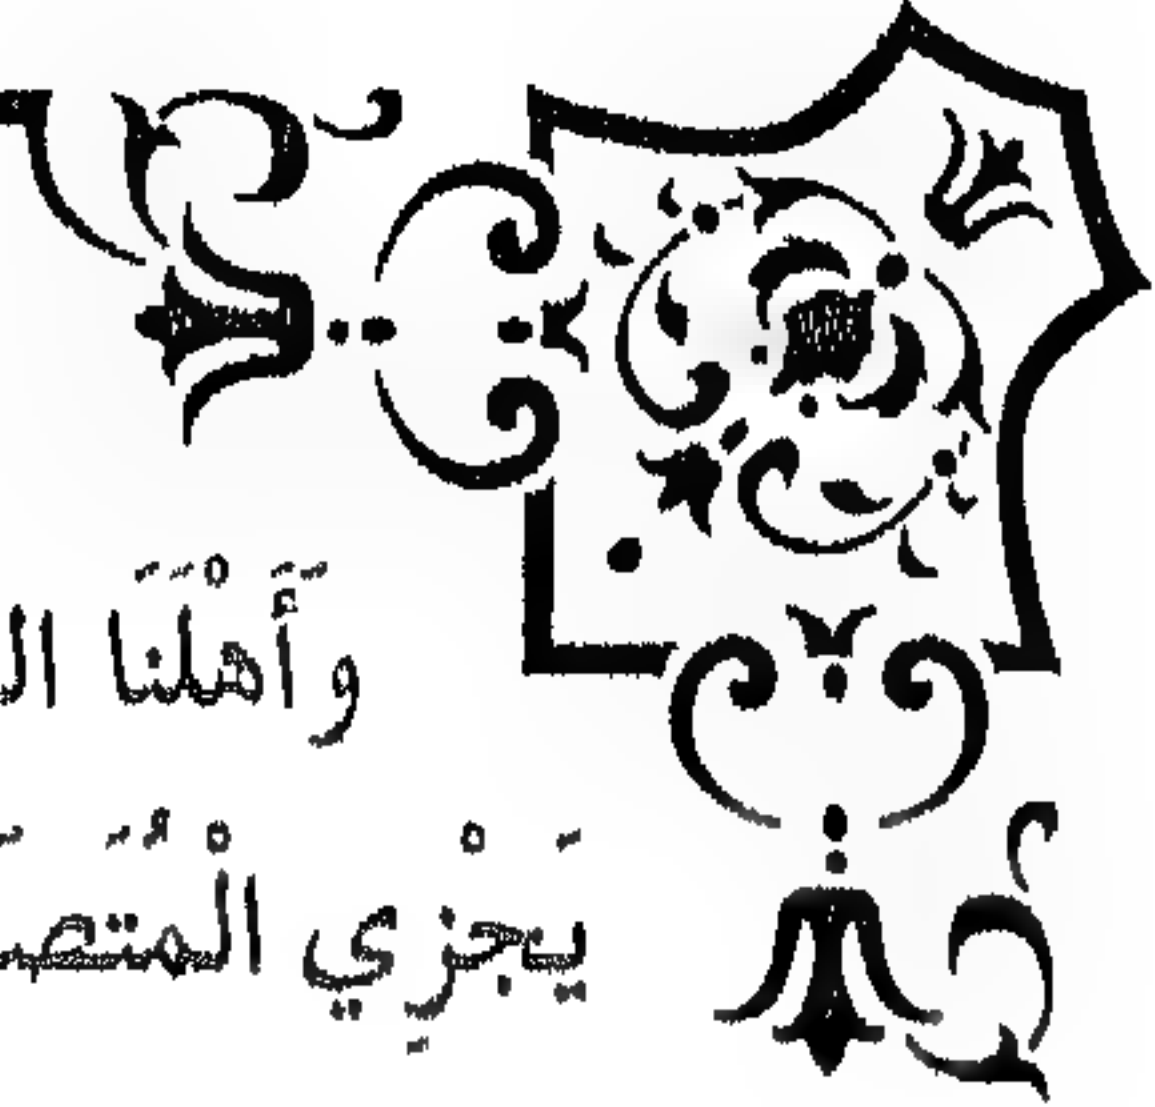 وَأَهْلَنَا ال
يَجْزِي الْمُتَص